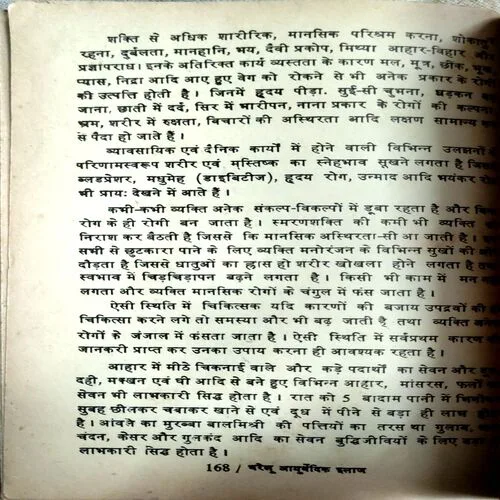 शक्ति से अधिक शारीरिक, मानसिक परिश्रम करना, शोकातुर
रहना, दुर्बलता, मानहानि, भय, दैवी प्रकोप, मिथ्या आहार-विहार और
प्रज्ञांपराध। इनके अतिरिक्त कार्य व्यस्तता के कारण मल, मूत्र, छींक, भूख,
प्यास, निद्रा आदि आए हुए वेग को रोकने से भी अनेक प्रकार के रोगों
की उत्पत्ति होती है। जिनमें हृदय पीड़ा. सुई-सी चुभना, धड़कन
जाना, छाती में दर्द, सिर में भारीपन, नाना प्रकार के रोगों की कल्पना,
भ्रम, शरीर में रुक्षता, विचारों की अस्थिरता आदि लक्षण सामान्य
से पैदा हो जाते हैं।
व्यावसायिक एवं दैनिक कार्यों में होने वाली विभिन्न उलझनों
परिणामस्वरूप शरीर एवं मस्तिष्क का स्नेहभाव सूखने लगता है जिससे
ब्लडप्रेशर, मधुमेह (डाइबिटीज), हृदय रोग, उन्माद आदि भयंकर रोग
भी प्रायः देखने में आते हैं।
कभी-कभी व्यक्ति अनेक संकल्प-विकल्पों में डूबा रहता है और
रोग के ही रोगी बन जाता है। स्मरणशक्ति की कमी भी व्यक्ति
निराश कर बैठती है जिससे कि मानसिक अस्थिरता-सी आ जाती है।
सभी से छुटकारा पाने के लिए व्यक्ति मनोरंजन के विभिन्न सुखों की ओर
दौड़ता है जिससे धातुओं का ह्रास हो शरीर खोखला होने लगता है तथा
स्वभाव में चिड़चिड़ापन बढ़ने लगता है। किसी भी काम में मन नहीं
लगता और व्यक्ति मानसिक रोगों के चंगुल में फंस जाता है।
ऐसी स्थिति में चिकित्सक यदि कारणों की बजाय उपद्रवों की
चिकित्सा करने लगे तो समस्या और भी बढ़ जाती है तथा व्यक्ति अनेक
रोगों के जंजाल में फंसता जाता है। ऐसी स्थिति में सर्वप्रथम कारण की
जानकारी प्राप्त कर उनका उपाय करना ही आवश्यक रहता है।
आहार में मीठे चिकनाई वाले और कड़े पदार्थों का सेवन और
दही, मक्खन एवं घी आदि से बने हुए विभिन्न आहार, मांसरस, फलों
सेवन भी लाभकारी सिद्ध होता है। रात को 5 बादाम पानी में
सुबह छीलकर चबाकर खाने से एवं दूध में पीने से बड़ा ही लाभ होता
है। आंवले का मुरब्बा बालमिश्री की पत्तियों का तरस था गुलाब,
चंदन, केसर और गुलकंद आदि का सेवन बुद्धिजीवियों के लिए बड़ा
लाभकारी सिद्ध होता है।
168 / घरेलू आयुर्वेदिक इलाज